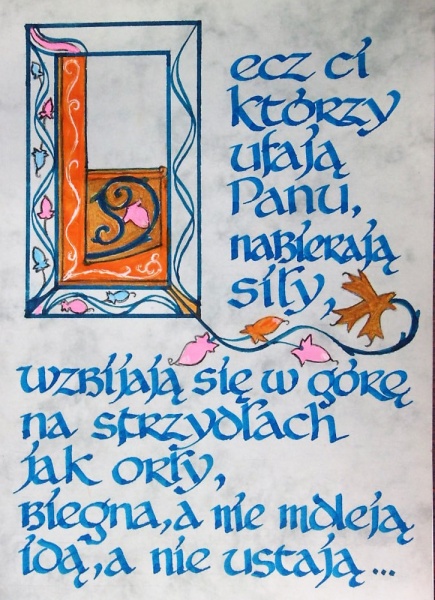 Lecz ci
którzy
ufają
Panu,
nabierają
siły,
wzbijają się w górę
na strzydłach
jak orły,
biegna, a nie mdleją
idą, a nie ustają...